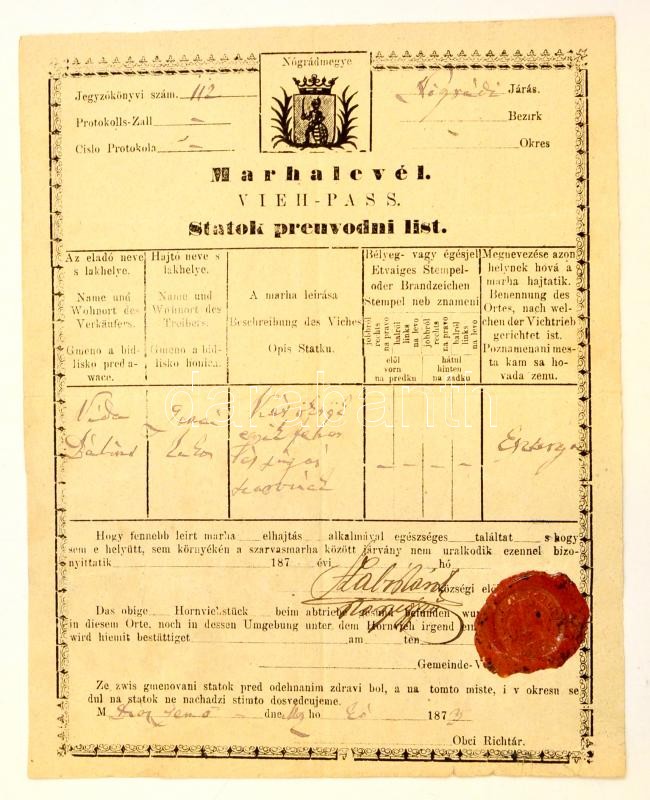 Nógrádmegye
Jegyzőkönyvi szám. 112
Nógrádi Járás.
Protokolls-Zall
Bezirk
Cislo Protokola
Okres
Marhalevél.
VIEH-PASS.
Statok preuvodni list.
Az eladó neve s lakhelye.
Name und Wohnort des Verkäufers.
Gmeno a bid-
lisko preda-
wace.
Hajtó neve s lakhelye.
Name und Wohnort des Treibers.
Gmeno a bid-
lisko honica.
A marha leírása
Beschreibung des Viches
Opis Statku.
Bélyeg- vagy égésjel
Etvaiges Stempel-
oder Brandzeichen
Stempel neb znameni
jobbról rechts na pravo
balról links na levo
jobbról rechts na pravo
balról links na levo
elől vorn na predku
hátul hinten na zadku
Megnevezése azon
helynek hová a
marha hajtatik.
Benennung des
Ortes, nach wel-
chen der Viehtrieb
gerichtet ist.
Poznamenani mes-
ta kam sa ho-
vada zenu.
Vida
Bálint
Lukos
szarvú
Eszterg
darabanth
Hogy fennebb leirt marha elhajtás alkalmával egészséges találtat s hogy
sem e helyütt, sem környékén a szarvasmarha között járvány nem uralkodik ezennel bizo-
nyittatik 187 évi hó
községi elö
Das obige Hornviehstück beim abtrieb gesund befunden wur
in diesem Orte, noch in dessen Umgebung unter dem Hornvieh irgend ein
wird hiemit bestättiget am ten
Gemeinde-V
Ze zwis gmenovani statok pred odehnanim zdravi bol, a na tomto miste, i v okresu se
dul na statok ne nachadzi stimto dosvedcujeme.
M dne ho 187
Obci Richtár.